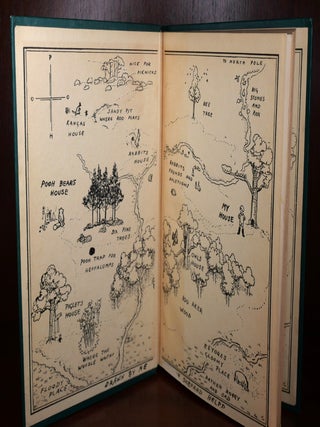 P
NICE FOR
PICNICKS
SANDY PIT
WHERE ROO PLAYS
KANGAS
HOUSE
RABBITS
HOUSE
POOH BEARS
HOUSE
SIX PINE
TREES
POOH TRAP FOR
HEFFALUMPS
PIGLETS
HOUSE
WHERE THE
WOOZLE WASNT
FLOODY
PLACE
DRAWN BY ME
TO NORTH POLE
BIG
STONES
AND
ROX
BEE
TREE
RABBITS
FRENDS AND
RALETIONS
MY
HOUSE
OWLS
HOUSE
100 AKER
WOOD
EEYORES
GLOOMY
PLACE
RATHER BOGGY
AND SAD
SHEPARD HELPD